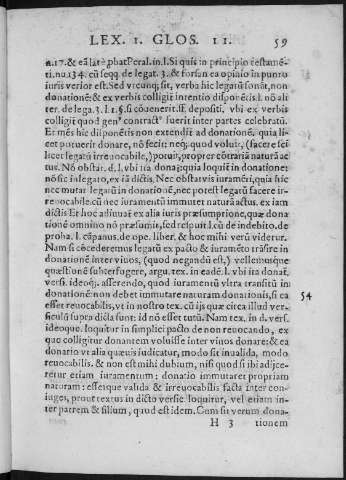 LEX. 1. GLOS. 11. 59
n.17. & eā latè ꝓbat Peral. in. l. Si quis in principio testamē-
ti. nu. 134. cū seqq. de legat. 3. & forsan ea opinio in puncto
iuris verior est. Sed vtcunq; sit, verba hic legatū sonāt, non
donationē: & ex verbis colligit intentio disponētis l. nō ali
ter. de lega. 3. l. 1. §. si cōuenerit. ff. depositi, vbi ex verbis
colligit̄ quod genꝰ contractꝰ fuerit inter partes celebratū.
Et mēs hic disponētis non extendit̄ ad donationē, quia li-
cet potuerit donare, nō fecit: neq; quod voluit, (facere sci
licet legatū irreuocabile,) potuit, propter cōtrariā naturā ac
tus. Nō obstāt d. l. vbi ita donat: quia loquit̄ in donatione:
nō sic in legato, ex iā dictis. Nec obstat vis iuramēti, quia hic
nec mutat legatū in donationē, nec potest legatū facere ir-
reuocabile. cū nec iuramentū immutet naturā actus. ex iam
dictis. Et hoc adiuuat̄ ex alia iuris præsumptione, quæ dona
tionē omnino nō præsumit, sed respuit l. cū de indebito. de
proba. l. cāpanus. de ope. liber. & hoc mihi verū videtur.
Nam si cōcederemus legatū ex pacto & iuramēto trāsire in
donationē inter viuos, (quod negandū est,) vellemusque
quæstionē subterfugere, argu. tex. in eadē. l. vbi ita donat̄.
versi. ideoq;. asserendo, quod iuramentū vltra transitū in
donationē: non debet immutare naturam donationis, si ea 54
esset reuocabilis, vt in nostro tex. cū ijs quæ circa illud ver-
siculū supra dicta sunt: id nō esset tutū. Nam tex. in d. vers.
ideoque. loquitur in simplici pacto de non reuocando, ex
quo colligitur donantem voluisse inter viuos donare: & ea
donatio vt alia quæuis iudicatur, modo sit inualida, modo
reuocabilis. & non est mihi dubium, nisi quod si ibi adijce-
retur etiam iuramentum; donatio immutaret propriam
naturam: essetque valida & irreuocabilis facta inter con-
iuges, prout textus in dicto versic. loquitur, vel etiam in-
ter patrem & filium, quod est idem. Cum sit verum dona-
H 3 tionem